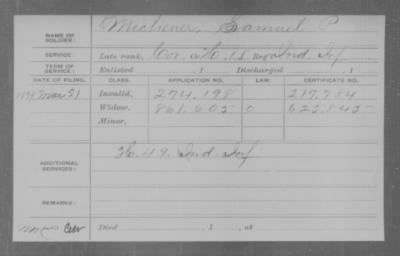 NAME OF SOLDIER: Michener, Samuel P
SERVICE: Late rank, Cor. Co. H. 18 Reg't Ind. Inf
TERM OF SERVICE: Enlisted , 1 Discharged , 1
DATE OF FILING. CLASS. APPLICATION NO. LAW. CERTIFICATE NO.
Invalid, 274.198 217.784
Widow, 861.605 0 625.845
Minor,
ADDITIONAL SERVICES: H. 49. Ind. Inf
REMARKS:
Died , 1 , at